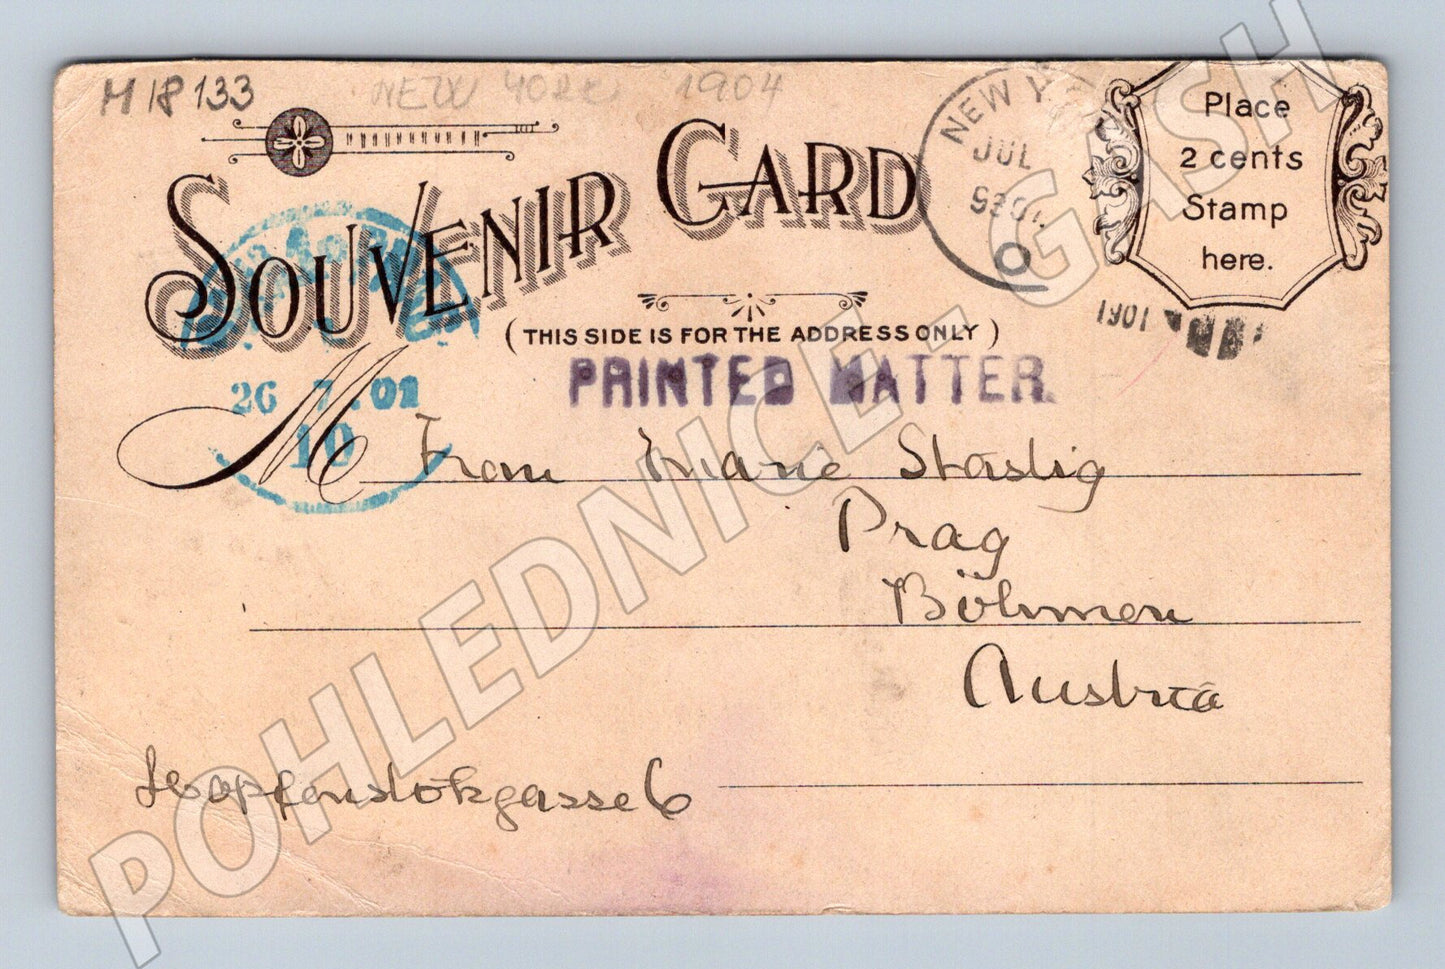 M 18 133
NEW YORK 1904
SOUVENIR CARD
NEW Y
JUL
1901
Place
2 cents
Stamp
here.
(THIS SIDE IS FOR THE ADDRESS ONLY)
PRINTED MATTER.
26 7 .01
10
M Frau Marie Stastig
Prag
Böhmen
Austria
Hopfenstokgasse 6
POHLEDNICE - GASH